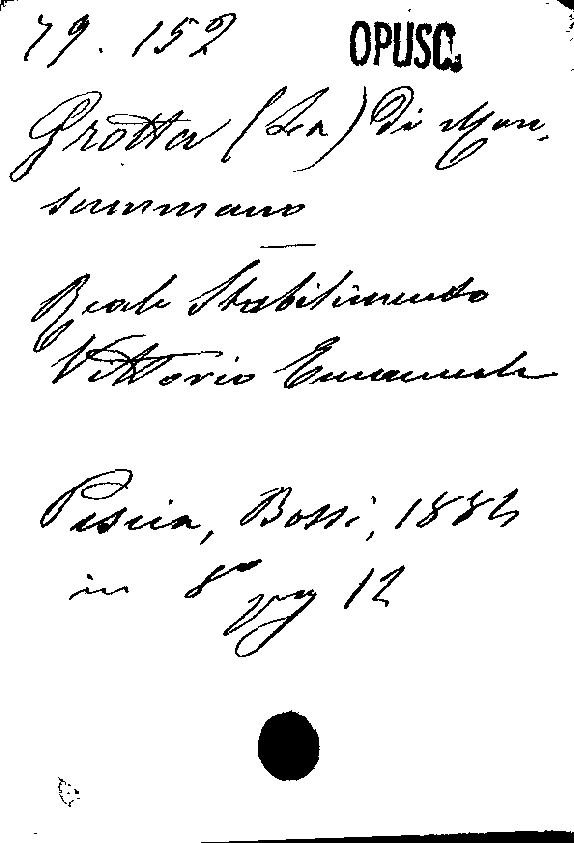 79. 152 OPUSC.
Grotta (La) di Mon-
summano
Reale Stabilimento
Vittorio Emanuele
Pescia, Bossi, 1884
in 8° pag 12